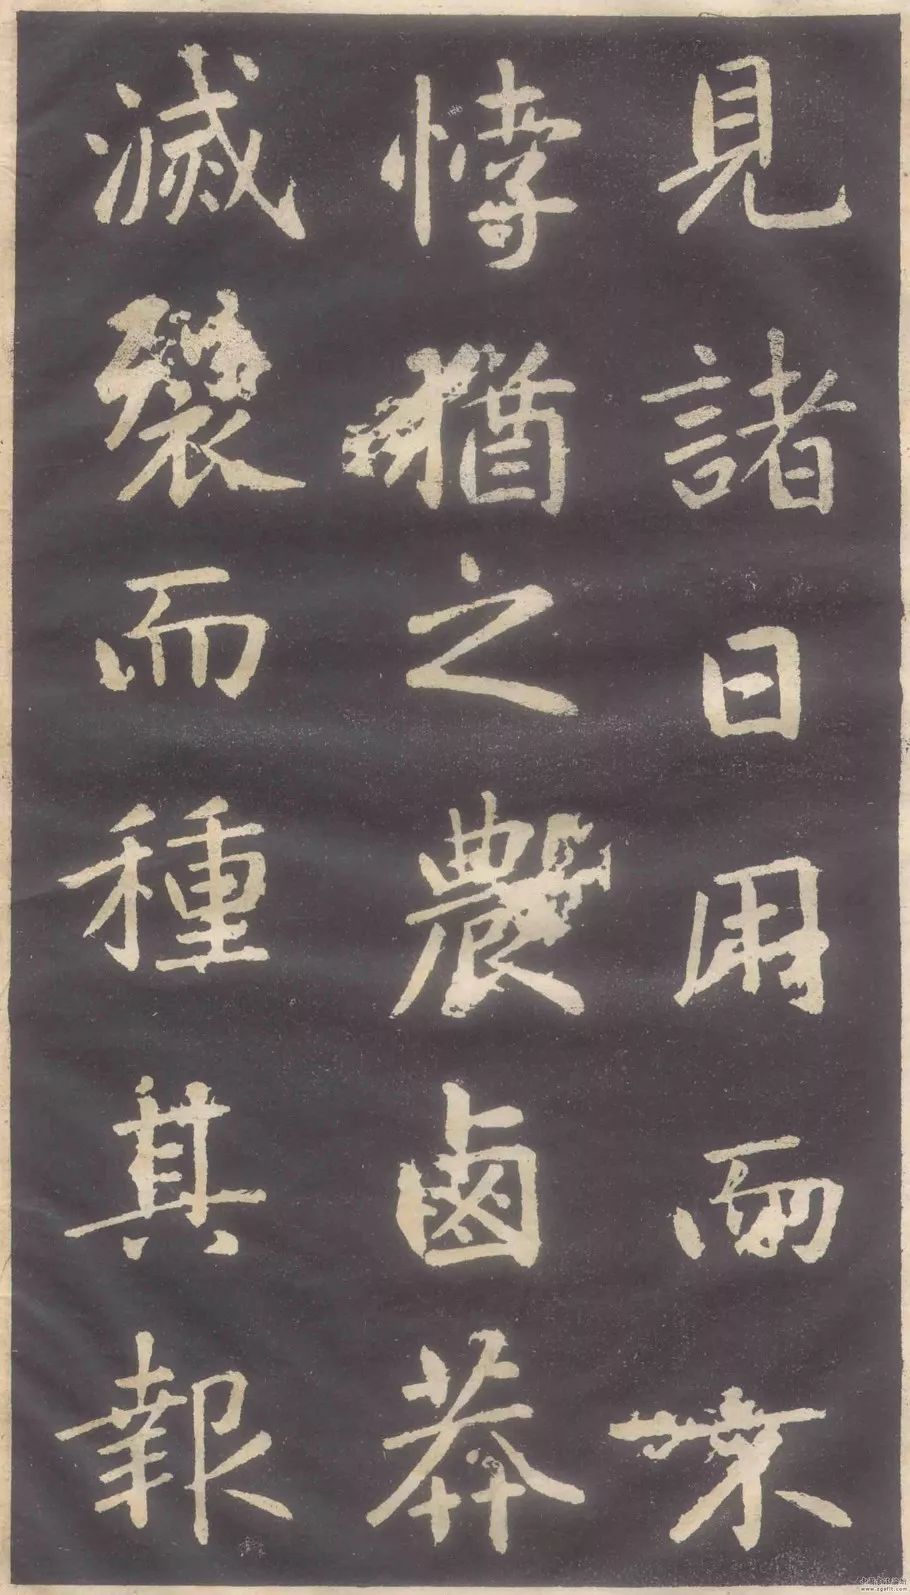 見諸日用而未
悖猶之農鹵莽
滅裂而種其報